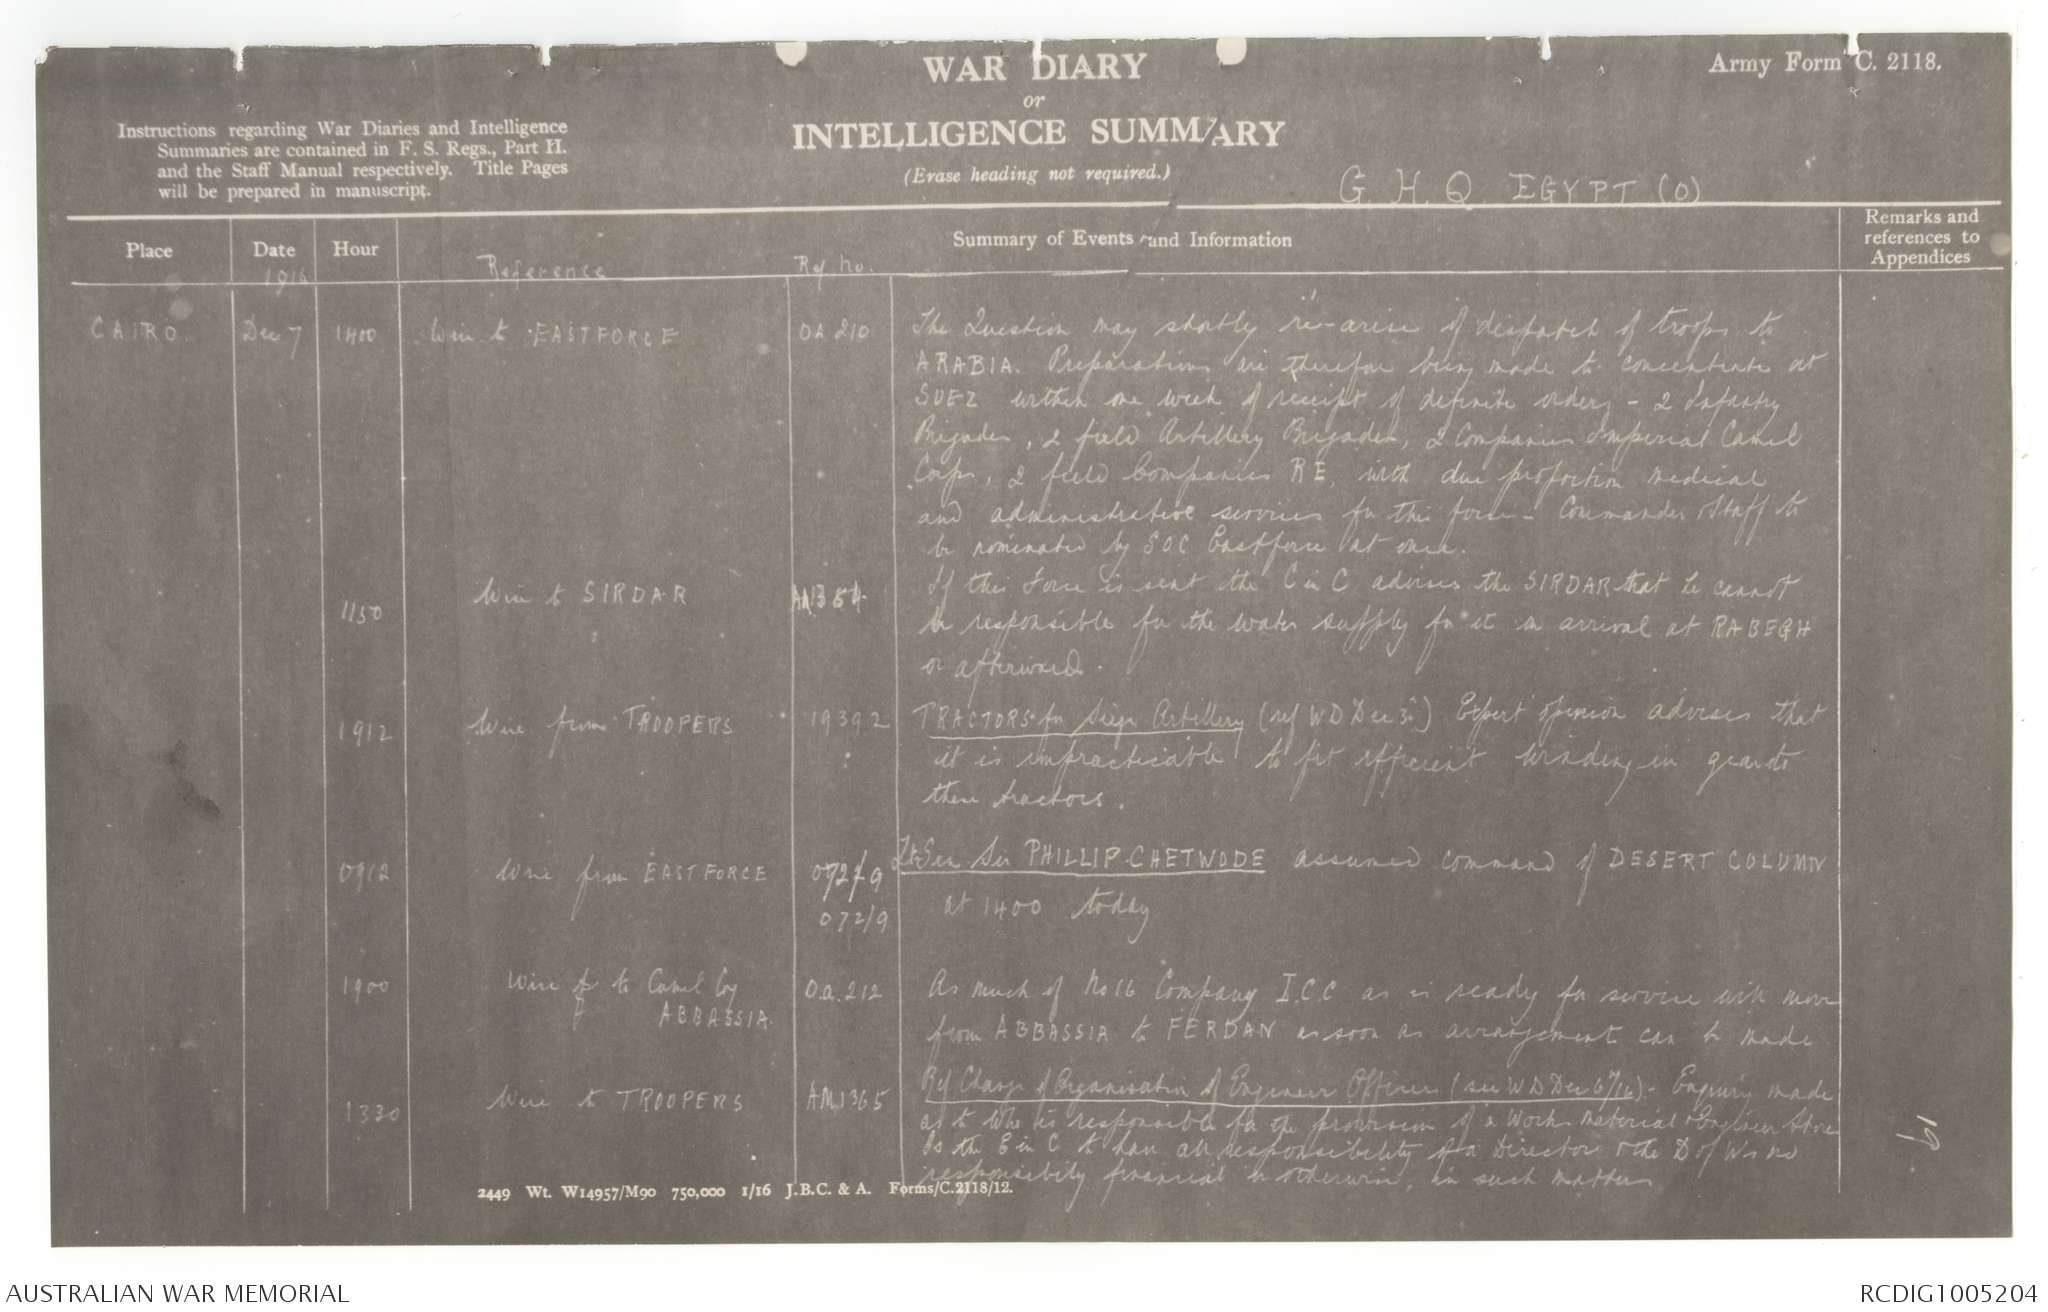 WAR DIARY
or
INTELLIGENCE SUMMARY
(Erase heading not required.)
Army Form C. 2118.
Instructions regarding War Diaries and Intelligence
Summaries are contained in F. S. Regs., Part II.
and the Staff Manual respectively. Title Pages
will be prepared in manuscript.
G. H. Q. EGYPT (O)
Place
Date
1916
Hour
Reference
Ref No.
Summary of Events and Information
Remarks and
references to
Appendices
CAIRO Dec 7 1400 Wire to EASTFORCE OA 210
The Question may shortly re-arise of dispatch of troops to
ARABIA. Preparations are therefore being made to concentrate at
SUEZ within one week of receipt of definite orders - 2 Infantry
Brigades, 2 field Artillery Brigades, 2 Companies Imperial Camel
Corps, 2 field Companies RE, with due proportion medical
and administrative services for this force - Commander & Staff to
be nominated by GOC Eastforce at once.
1150 Wire to SIRDAR AM1364
If this Force is sent the C in C advises the SIRDAR that he cannot
be responsible for the water supply for it on arrival at RABEGH
or afterwards.
1912 Wire from TROOPERS 19392
TRACTORS for Siege Artillery (ref WD Dec 3rd) Expert opinion advises that
it is impracticable to fit efficient winding-in gear to
these tractors.
0912 Wire from EASTFORCE
072/9
Lt Gen Sir PHILLIP CHETWODE assumed command of DESERT COLUMN
at 1400 today
1900 Wire to Camel Coy
ABBASSIA.
O.a.212
As much of No 16 Company I.C.C as is ready for service will move
from ABBASSIA to FERDAN as soon as arrangement can be made
1330 Wire to TROOPERS AM1365
Ref Charge of Organisation of Engineer Officers (see WD Dec 6/16) - Enquiry made
as to who is responsible for the provision of a Works material & Engineer Stores
Is the E in C to have all responsibility as a Director & the D of W no
responsibility financial or otherwise, in such matters
19
2449 Wt. W14957/M90 750,000 1/16 J.B.C. & A. Forms/C.2118/12.
AUSTRALIAN WAR MEMORIAL
RCDIG1005204